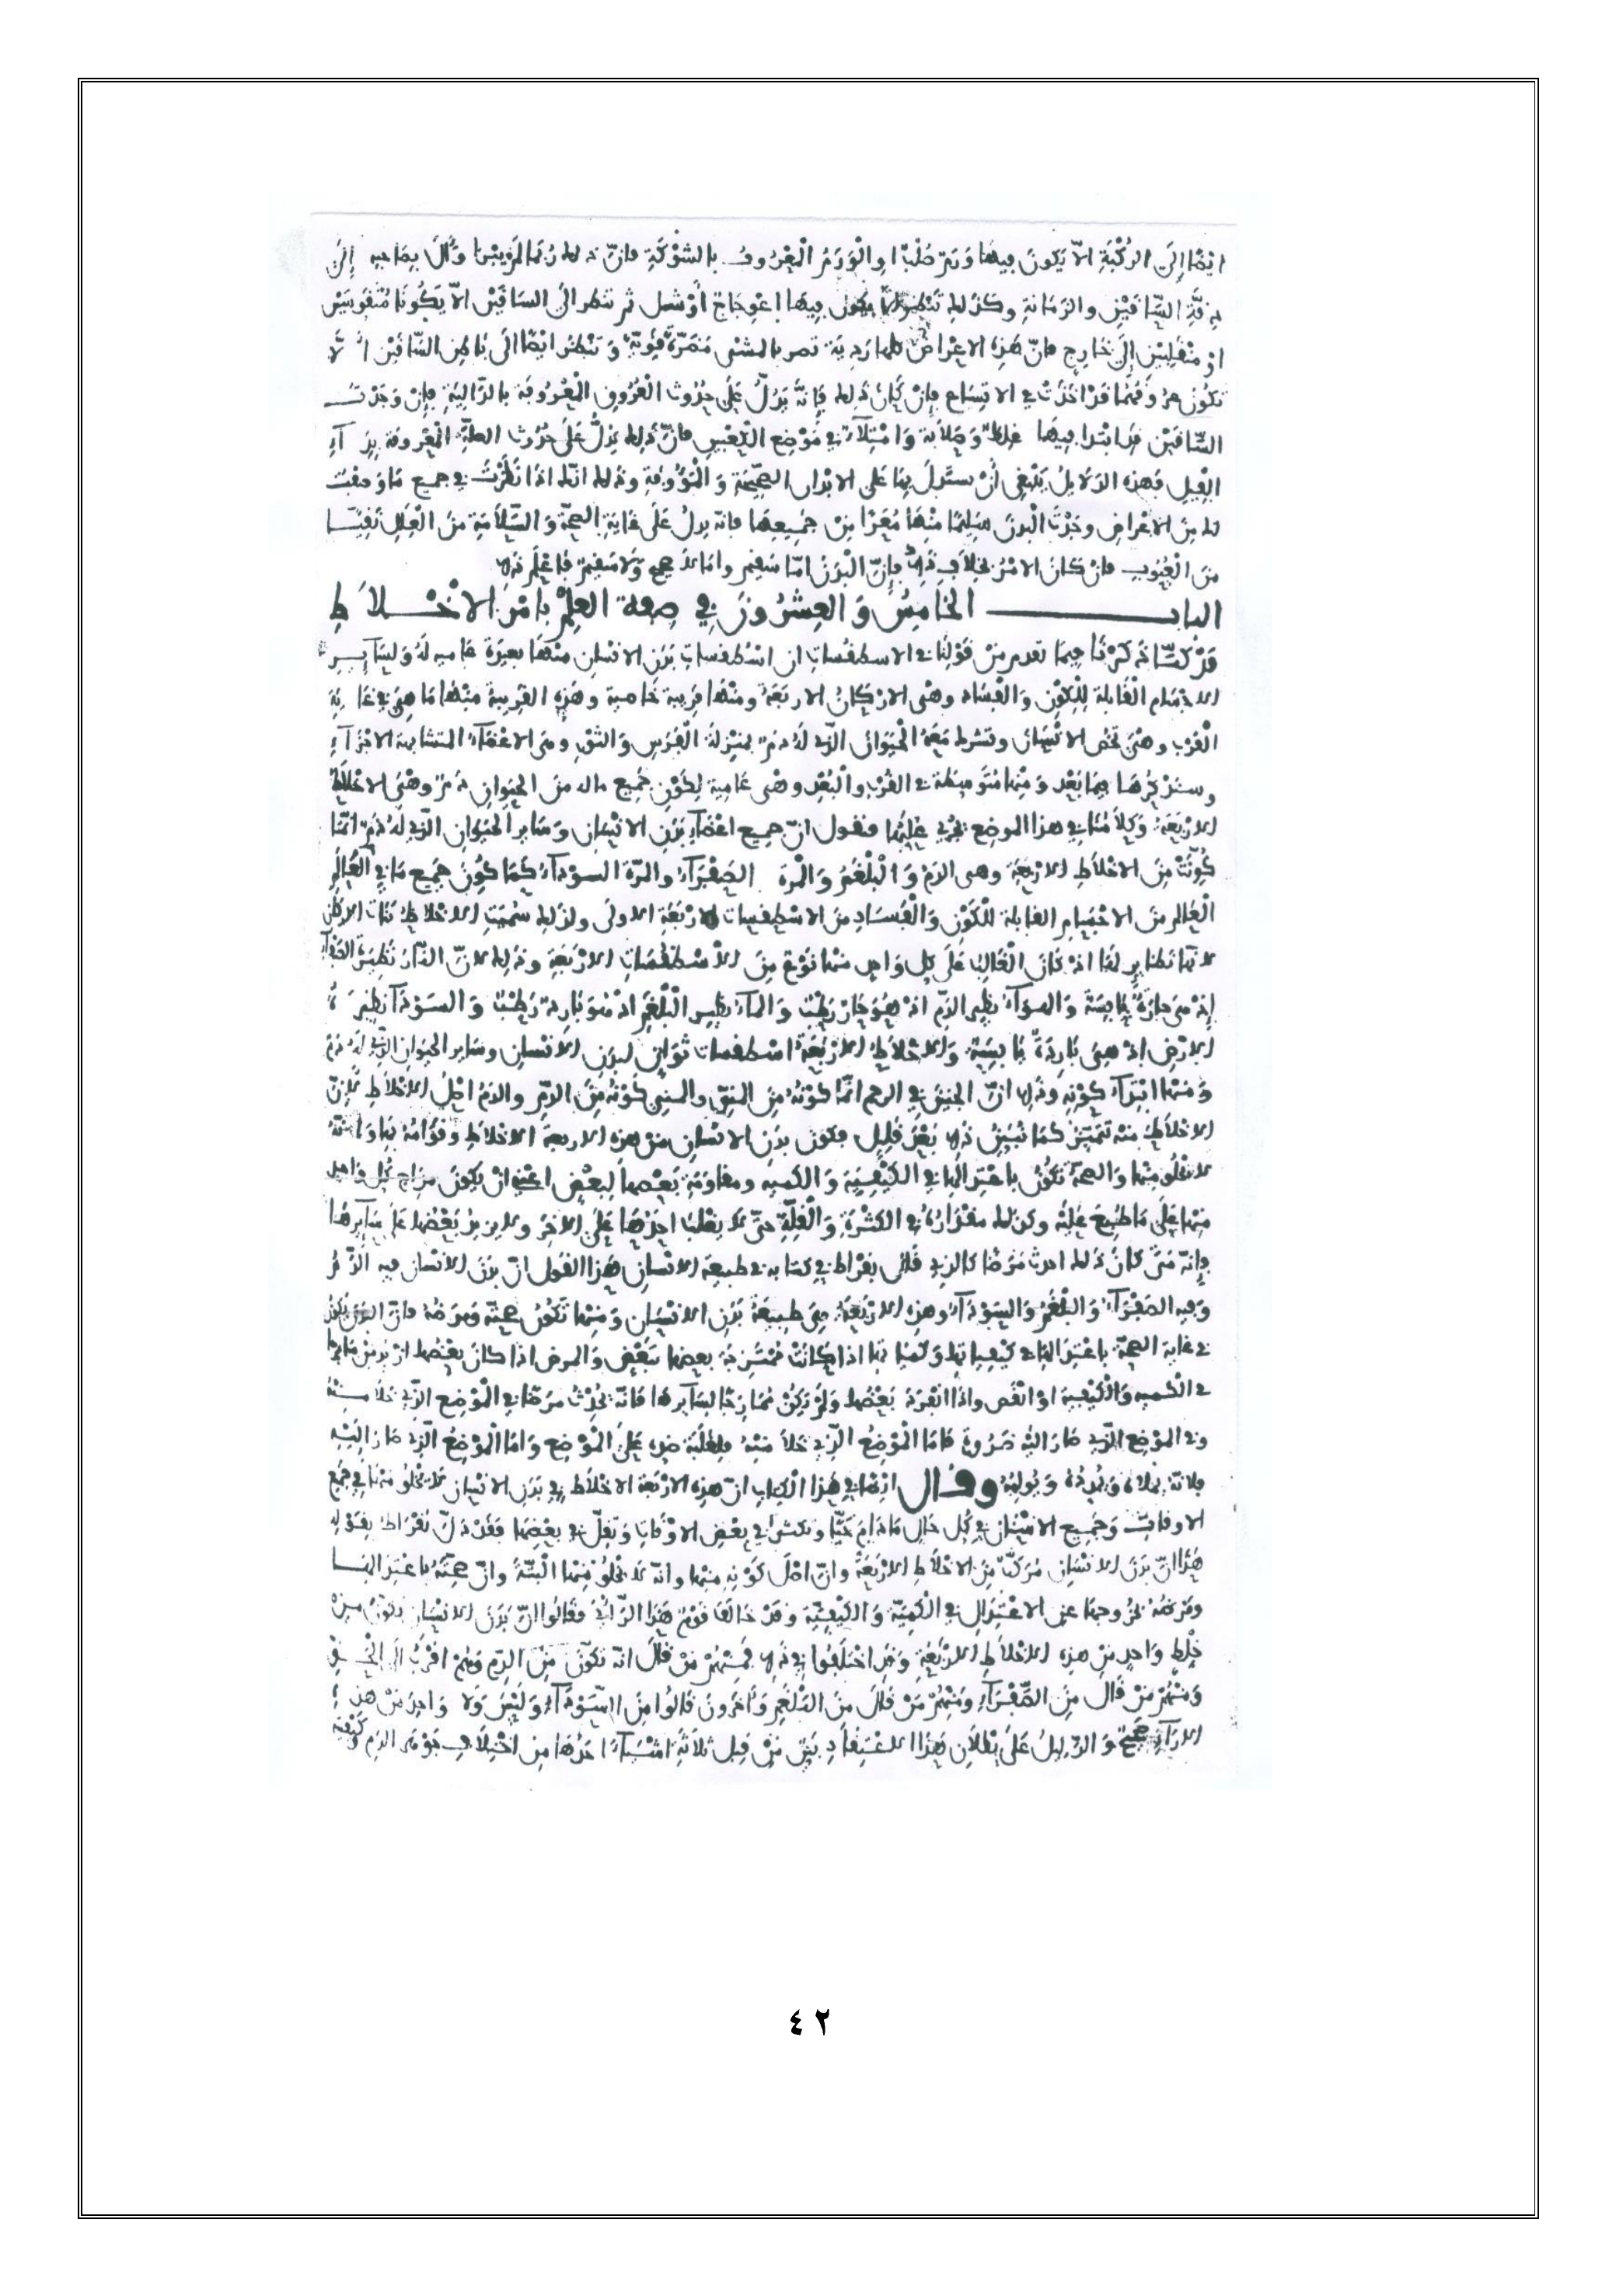 ايضا إلى الركبة الا يكون فيها ورم صلبا او الورم المعروف بالشوكة فان ذلك ربما لم يبرا وآل بصاحبه إلى
دقة الساقين والزمانة وكذلك تنظر يكون فيها اعوجاج أو شمل ثم تنظر الى الساقين الا يكونا متقوسين
او منقلبين إلى خارج فان هذه الاعراض كلها ردية تضر بالمشي مضرة قوية وتنظر ايضا الى باطن الساقين الا
تكون عروقهما قد اخذت في الاتساع فإن كان ذلك فإنه يدل على حدوث العروق المعروفة بالدالية فإن وجدت
الساقين قد ابتدا فيها غلظ وصلابة وامتلاء في موضع الكعبين فان ذلك يدل على حدوث العلة المعروفة بداء
الفيل فهذه الدلايل ينبغي أن يستدل بها على الابدان الصحيحة والمؤوفة وذلك انك اذا نظرت في جميع ما وصفت
لك من الاعراض وجدت البدن سليما منها معرا من جميعها فانه يدل على غاية الصحة والسلامة من العلل نقيا
من العيوب فان كان الامر بخلاف ذلك فإن البدن اما سقيم واما لا صحيح ولا سقيم فاعلم ذلك
الباب الخامس والعشرون في صفة العلم بامر الاخلاط
قد كنا ذكرنا فيما تقدم من قولنا في الاسطقسات ان اسطقسات بدن الانسان منها بعيدة عامية له ولساير
الاجسام القابلة للكون والفساد وهي الاركان الاربعة ومنها قريبة خاصية وهذه القريبة منها ما هي في غاية
القرب وهي تخص الانسان وتشرك معه الحيوان الذي له دم بمنزلة الفرس والثور وهي الاعضاء المتشابهة الاجزاء
وسنذكرها فيما بعد ومنها متوسطة في القرب والبعد وهي عامية لكون جميع ماله من الحيوان دم وهي الاخلاط
الاربعة وكلامنا في هذا الموضع يجري عليها فنقول ان جميع اعضاء بدن الانسان وساير الحيوان الذي له دم انما
كونت من الاخلاط الاربعة وهي الدم والبلغم والمرة الصفراء والمرة السوداء كما كون جميع ما في العالم
العالم من الاجسام القابلة للكون والفساد من الاسطقسات الاربعة الاولى ولذلك سميت الاخلاط بنات الاركان
لانها نظاير لها اذ كان الغالب على كل واحد منها نوع من الأسطقسات الاربعة وذلك لان النار نظيرة الصفراء
إذ هي حارة يابسة والهواء نظير الدم اذ هو حار رطب والماء نظير البلغم اذ هو بارد رطب والسوداء نظيرة
الارض اذ هي باردة يابسة والاخلاط الاربعة اسطقسات ثوان لبدن الانسان وساير الحيوان الذي له دم
ومنها ابتداء كونه وذلك ان الجنين في الرحم انما كونه من المني والمني كونه من الدم والدم اصل الاخلاط لان
الاخلاط منه تتميز كما نبين ذلك بعد قليل فكون بدن الانسان من هذه الاربعة الاخلاط وقوامه بها وانه
لا يخلو منها والصحة تكون باعتدالها في الكيفية والكمية ومقاومة بعضها لبعض اعني ان يكون مزاج كل واحد
منها على ما طبع عليه وكذلك مقداره في الكثرة والقلة حتى لا يغلب احدها على الاخر ولا يزيد بعضها على سايرها
فإنه متى كان ذلك احدث مرضا كالذي قال بقراط في كتابه في طبيعة الانسان هذا القول ان بدن الانسان فيه الدم
وفيه الصفراء والبلغم والسوداء وهذه الاربعة هي طبيعة بدن الانسان ومنها تكون صحته ومرضه فان البدن يكون
في غاية الصحة باعتدالها في كيفياتها وكمياتها اذا كانت ممتزجة بعضها ببعض والمرض اذا كان بعضها ازيد من سايرها
في الكمية والكيفية او انقص واذا انفرد بعضها ولم يكن ممازجا لسايرها فانه يحدث مرضا في الموضع الذي خلا منه
وفي الموضع الذي صار اليه ضرورة فاما الموضع الذي خلا منه فلغلبة ضده على الموضع واما الموضع الذي صار إليه
فلانه يملاه ويمدده ويولمه وقال ايضا في هذا الكتاب ان هذه الاربعة الاخلاط في بدن الانسان لا يخلو منها في جميع
الاوقات وجميع الاسنان في كل حال ما دام حيا وتكثر في بعض الاوقات وتقل في بعضها فقد دل بقراط بقوله
هذا ان بدن الانسان مركب من الاخلاط الاربعة وان اصل كونه منها وانه لا يخلو منها البتة وان صحته باعتدالها
ومرضه بخروجها عن الاعتدال في الكمية والكيفية وقد خالف قوم هذا الرأي فقالوا ان بدن الانسان يكون من
خلط واحد من هذه الاخلاط الاربعة وقد اختلفوا في ذلك فمنهم من قال انه تكون من الدم وهم اقرب الى الحق
ومنهم من قال من الصفراء ومنهم من قال من البلغم وآخرون قالوا من السوداء وليس ولا واحد من هذه
الاراء صحيح والدليل على بطلان هذا الاعتقاد بين من قبل ثلاثة اشياء احدها من اختلاف جوهر الدم وكيفيته
٤٢